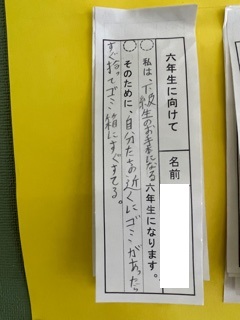 六年生に向けて
名前
私は、下級生のお手本になる六年生になります。
そのために、自分たちの近くにゴミがあったら
すぐ拾ってゴミ箱にすぐすてる。